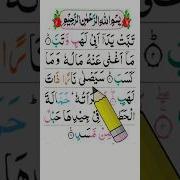 بِسْمِ اللهِ الرَّحْمٰنِ الرَّحِيْمِ
تَبَّتْ يَدَآ اَبِيْ لَهَبٍ وَّتَبَّ
مَآ اَغْنٰى عَنْهُ مَالُهٗ وَمَا
كَسَبَ سَيَصْلٰى نَارًا ذَاتَ
لَهَبٍ حَمَّالَةَ
فِيْ جِيْدِهَا حَبْلٌ
مِّنْ مَّسَدٍ